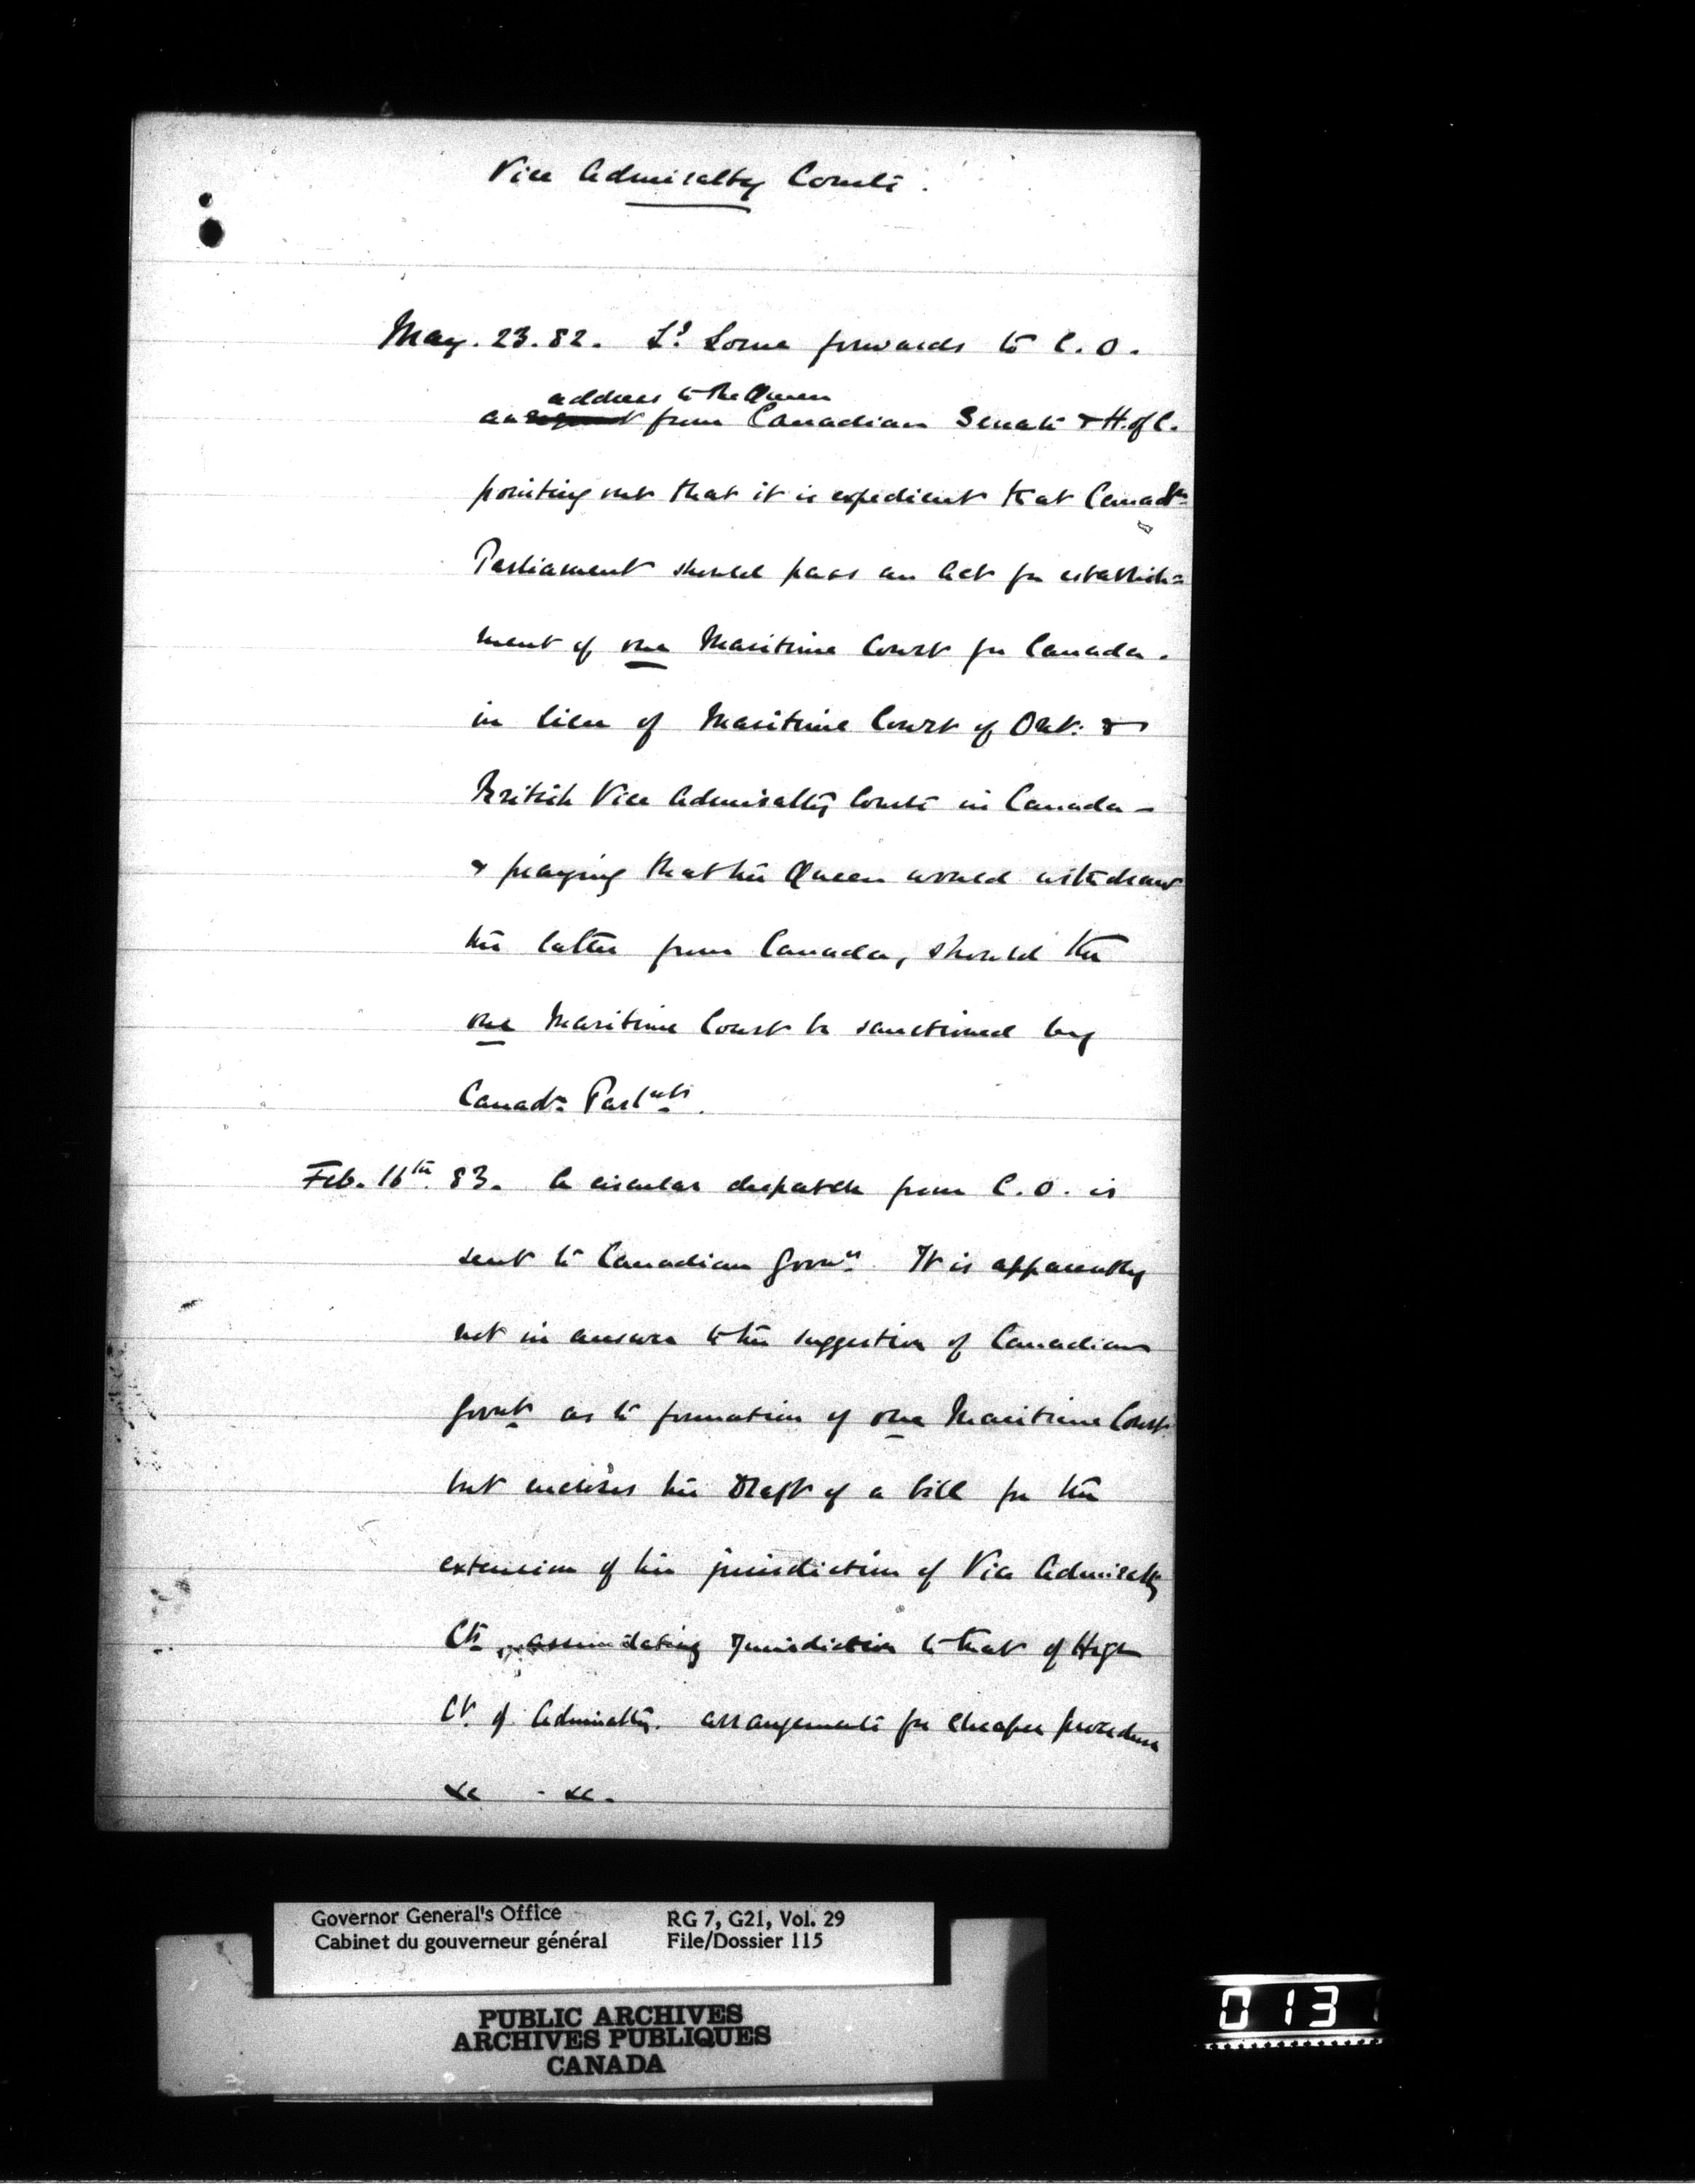 Vice Admiralty Courts.
May. 23. 82. Ld Lorne forwards to C.O.
address to the Queen
an from Canadian Senate & H. of C.
pointing out that it is expedient that Canadn
Parliament should pass an Act for establish=
ment of one Maritime Court for Canada.
in lieu of Maritime Court of Ont: &
British Vice Admiralty Courts in Canada -
& praying that the Queen would withdraw
the latter from Canada, should the
one Maritime Court be sanctioned by
Canadn Parlnt.
Feb. 16th 83. A circular despatch from C.O. is
sent to Canadian Govrt. It is apparently
not in answer to the suggestion of Canadian
Govnt as to formation of one Maritime Court
but encloses the Draft of a bill for the
extension of the jurisdiction of Vice Admiralty
Cts assimilating Jurisdiction to that of High
Ct. of Admiralty. arrangements for cheaper procedure
&c - &c.
Governor General's Office RG 7, G21, Vol. 29
Cabinet du gouverneur général File/Dossier 115
PUBLIC ARCHIVES
ARCHIVES PUBLIQUES
CANADA
0131